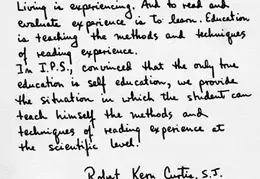 Living is experiencing. And to read and
evaluate experience is to learn. Education
is teaching the methods and techniques
of reading experience.
In I.P.S., convinced that the only true
education is self education, we provide
the situation in which the student can
teach himself the methods and
techniques of reading experience at
the scientific level.
Robert Kern Curtis, S.J.